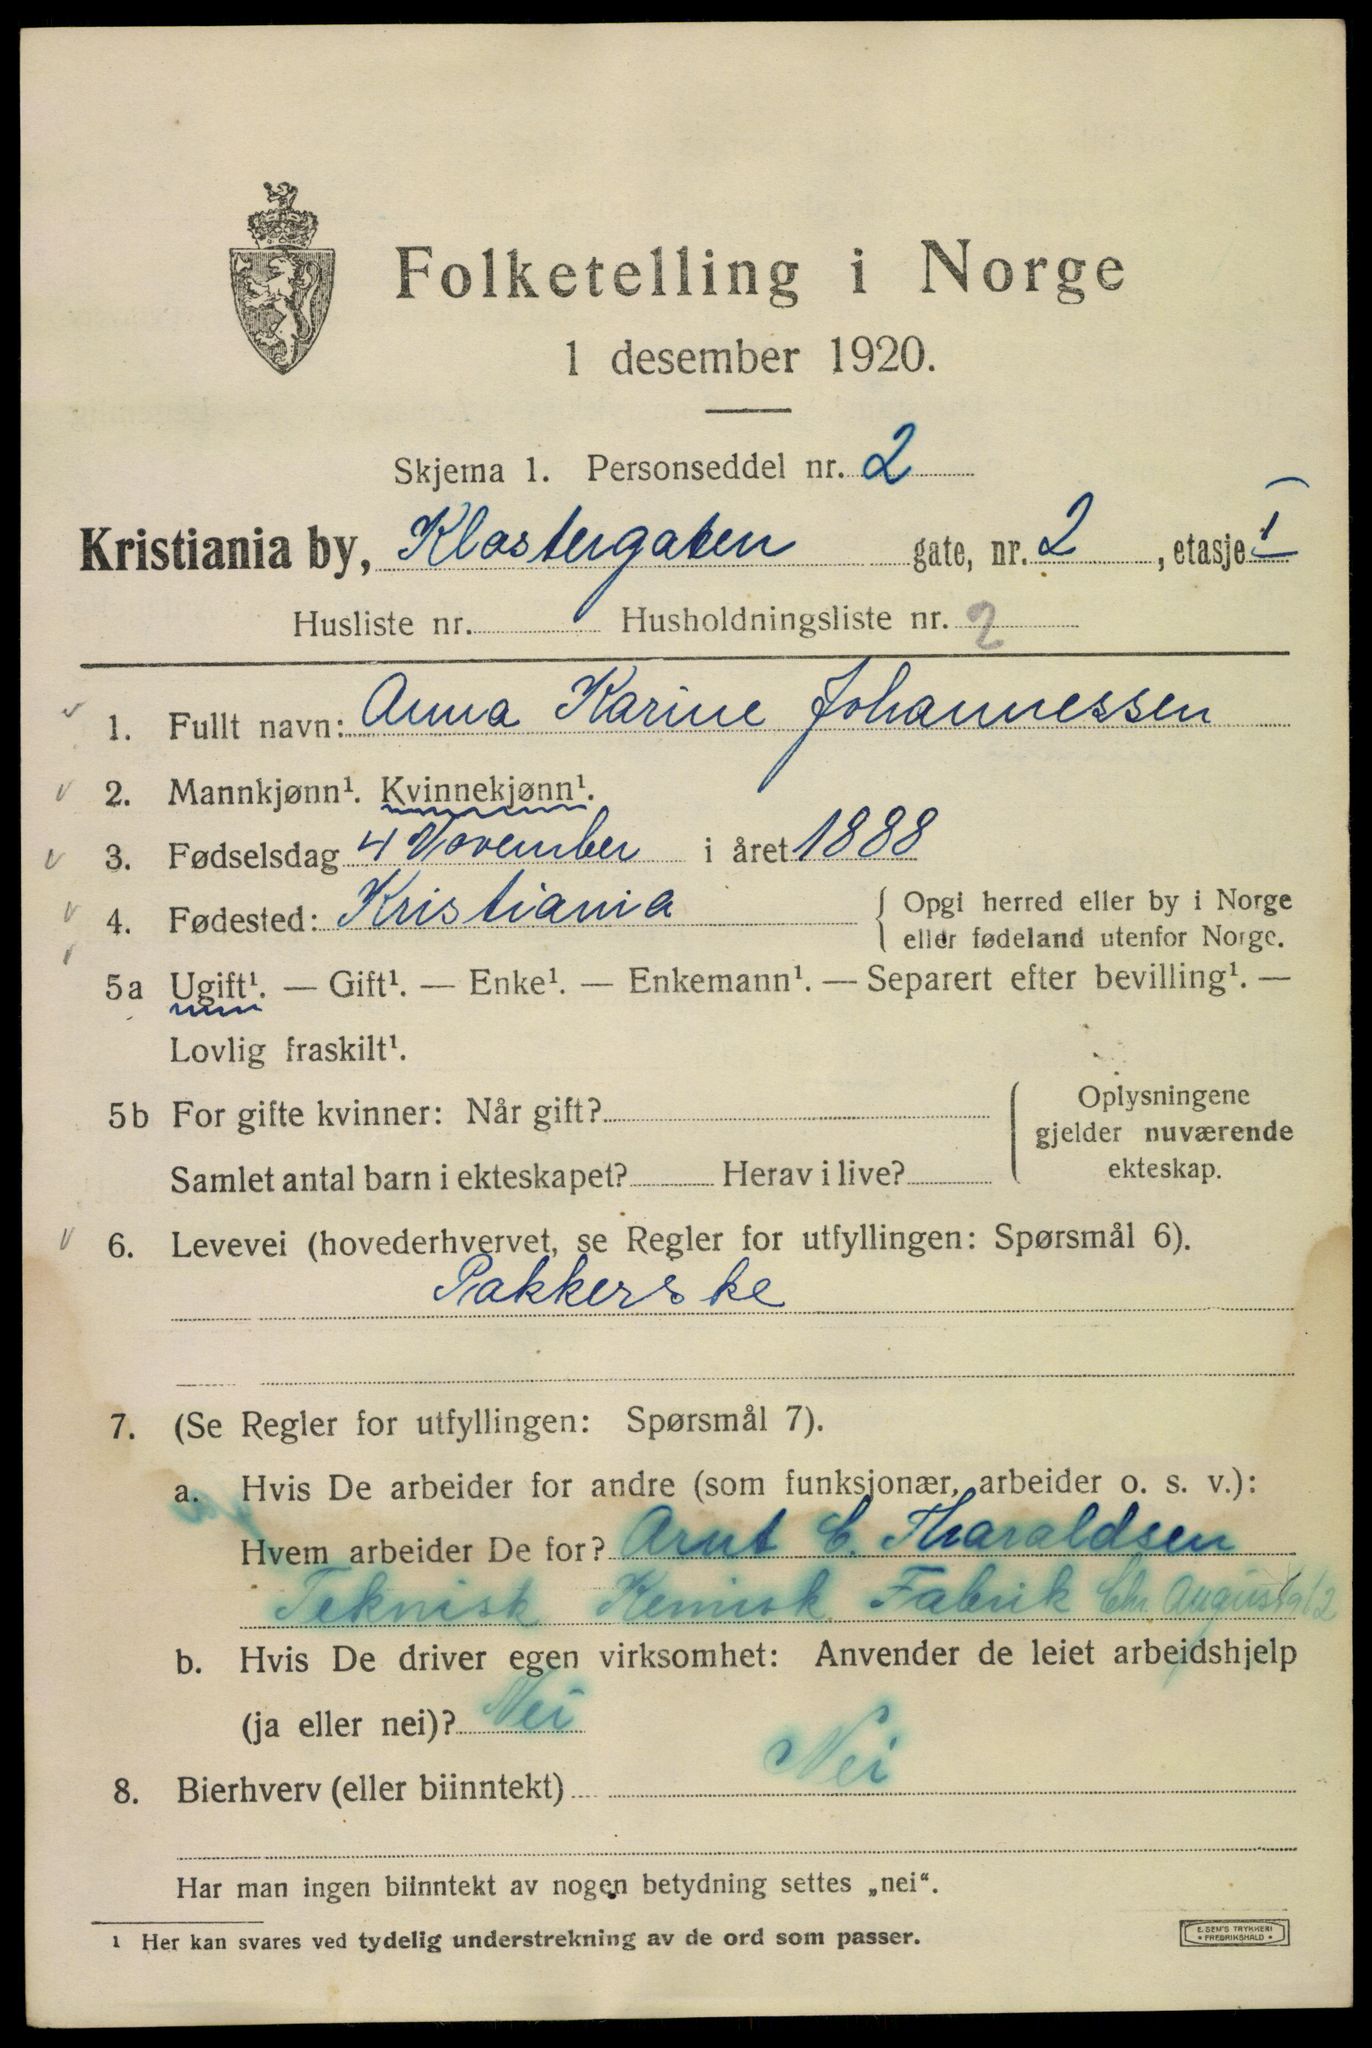 Folketelling i Norge
1 desember 1920.
Skjema 1. Personseddel nr. 2
Kristiania by, Klostergaten gate, nr. 2, etasje I
Husliste nr. Husholdningsliste nr. 2
1. Fullt navn: Anna Karine Johannessen
2. Mannkjønn¹. Kvinnekjønn¹.
3. Fødselsdag 4 November i året 1888
4. Fødested: Kristiania { Opgi herred eller by i Norge
eller fødeland utenfor Norge.
5a Ugift¹. — Gift¹. — Enke¹. — Enkemann¹. — Separert efter bevilling¹. —
Lovlig fraskilt¹.
5b For gifte kvinner: Når gift? Oplysningene
gjelder nuværende
Samlet antal barn i ekteskapet? Herav i live? ekteskap.
6. Levevei (hovederhvervet, se Regler for utfyllingen: Spørsmål 6).
Pakkerske
7. (Se Regler for utfyllingen: Spørsmål 7).
a. Hvis De arbeider for andre (som funksjonær, arbeider o. s. v.):
Hvem arbeider De for? Arnt C. Tharaldsen
Teknisk Kemisk Fabrik Chr Augustg 12
b. Hvis De driver egen virksomhet: Anvender de leiet arbeidshjelp
(ja eller nei)? Nei
8. Bierhverv (eller biinntekt) Nei
Har man ingen biinntekt av nogen betydning settes „nei“.
¹ Her kan svares ved tydelig understrekning av de ord som passer.
E. SEM'S TRYKKERI
• FREDRIKSHALD •